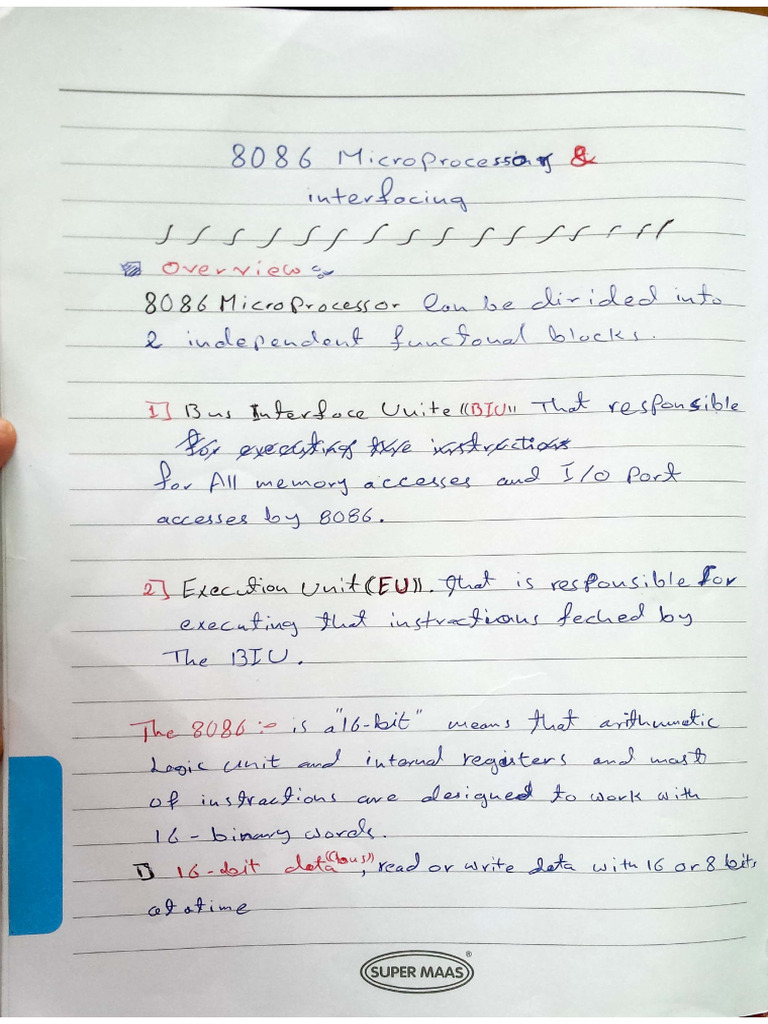 8086 Microprocessor &
interfacing
Overview :-
8086 Microprocessor Can be divided into
2 independent functonal blocks.
1] Bus Interface Unite ((BIU)) That responsible
for executing the instructions
for All memory accesses and I/O Port
accesses by 8086.
2] Execution Unit ((EU)). that is responsible for
executing that instractions feched by
The BIU.
The 8086 :- is a "16-bit" means that arithmatic
Logic unit and internal registers and most
of instractions are designed to work with
16-binary words.
1] 16-bit data ((bus)), read or write data with 16 or 8 bits
at a time
SUPER MAAS®